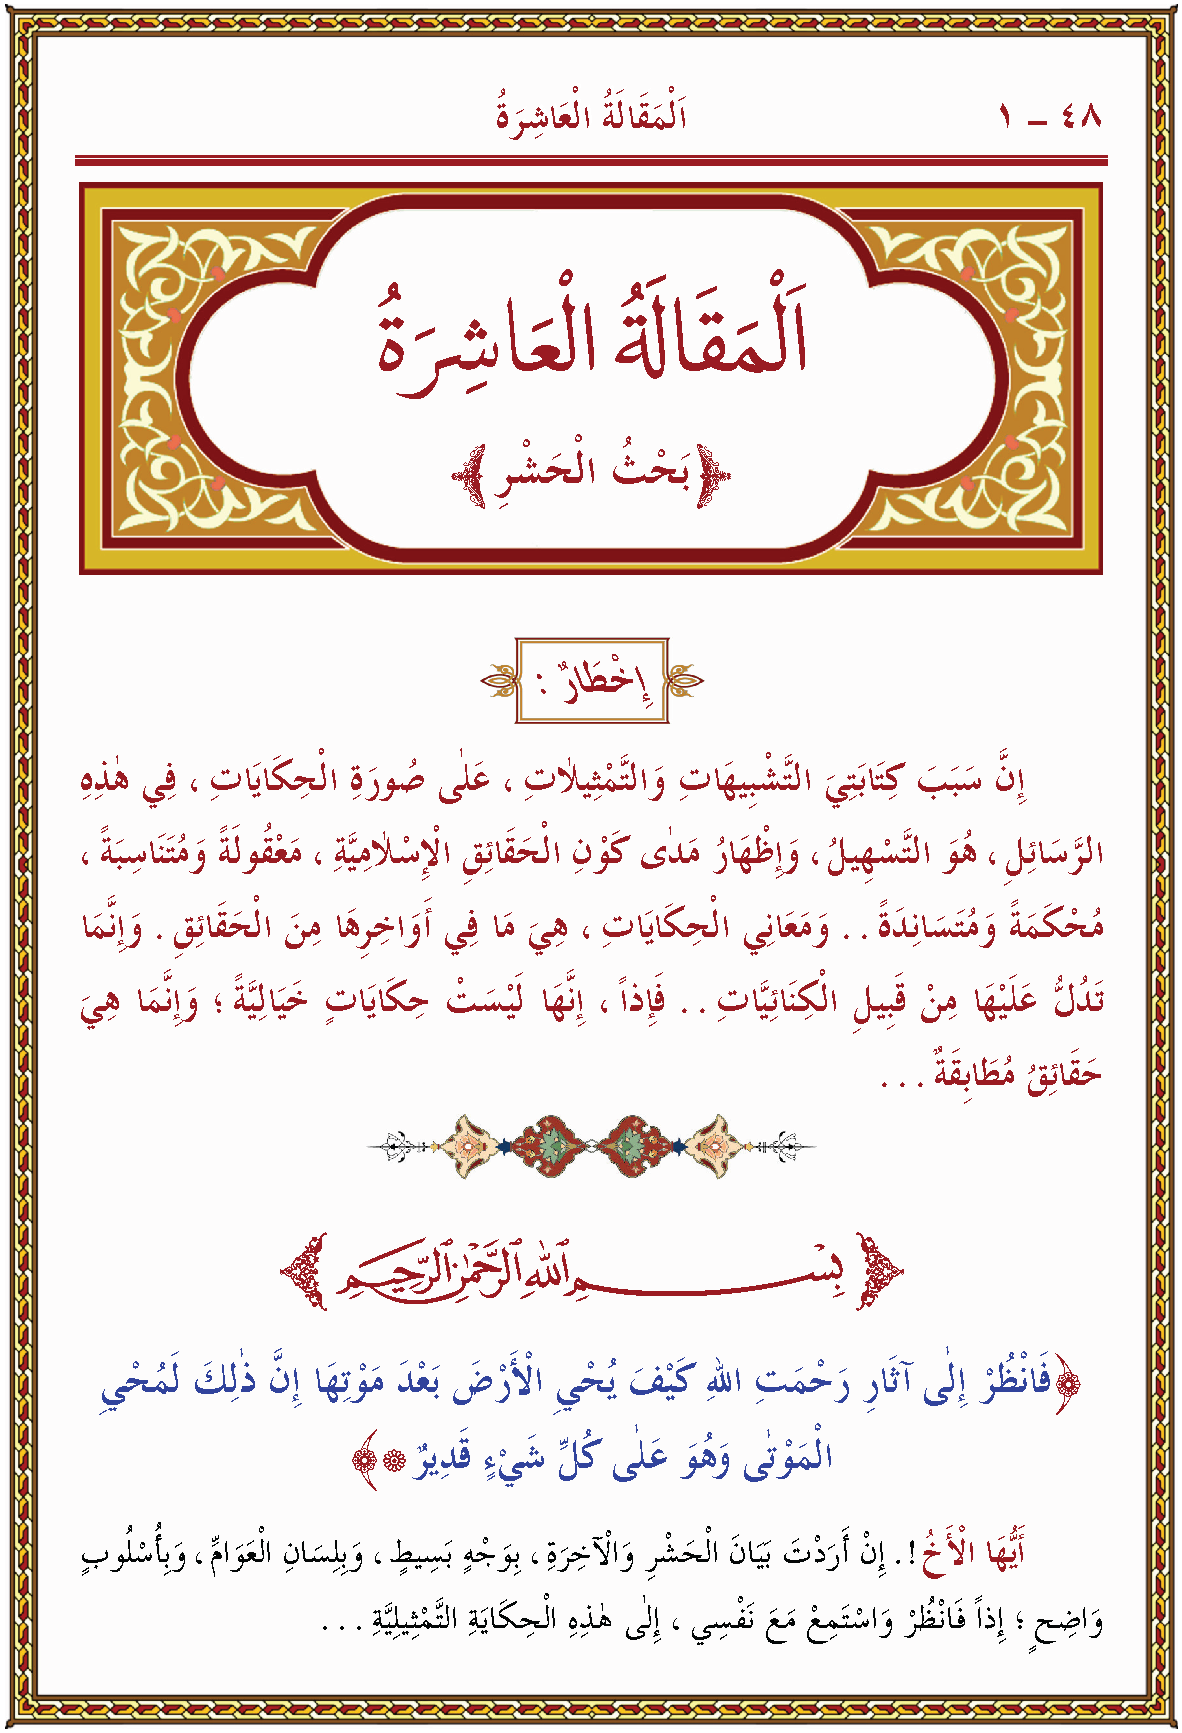 ٤٨ – ١
اَلْمَقَالَةُ الْعَاشِرَةُ
اَلْمَقَالَةُ الْعَاشِرَةُ
بَحْثُ الْحَشْرِ
إِخْطَارٌ :
إِنَّ سَبَبَ كِتَابَتِيَ التَّشْبِيهَاتِ وَالتَّمْثِيلاٰتِ ، عَلٰى صُورَةِ الْحِكَايَاتِ ، فِي هٰذِهِ
الرَّسَائِلِ ، هُوَ التَّسْهِيلُ ، وَإِظْهَارُ مَدٰى كَوْنِ الْحَقَائِقِ الْإِسْلاٰمِيَّةِ ، مَعْقُولَةً وَمُتَنَاسِبَةً ،
مُحْكَمَةً وَمُتَسَانِدَةً . . وَمَعَانِي الْحِكَايَاتِ ، هِيَ مَا فِي أَوَاخِرِهَا مِنَ الْحَقَائِقِ . وَإِنَّمَا
تَدُلُّ عَلَيْهَا مِنْ قَبِيلِ الْكِنَائِيَّاتِ . . فَإِذاً ، إِنَّهَا لَيْسَتْ حِكَايَاتٍ خَيَالِيَّةً ؛ وَإِنَّمَا هِيَ
حَقَائِقُ مُطَابِقَةٌ . . .
بِسْمِ ٱللّٰهِ ٱلرَّحْمٰنِ ٱلرَّحِيمِ
﴿فَانْظُرْ إِلٰى آثَارِ رَحْمَتِ اللهِ كَيْفَ يُحْيِي الْأَرْضَ بَعْدَ مَوْتِهَا إِنَّ ذٰلِكَ لَمُحْيِي
الْمَوْتٰى وَهُوَ عَلٰى كُلِّ شَيْءٍ قَدِيرٌ ۝﴾
أَيُّهَا الْأَخُ ! . إِنْ أَرَدْتَ بَيَانَ الْحَشْرِ وَالْآخِرَةِ ، بِوَجْهٍ بَسِيطٍ ، وَبِلِسَانِ الْعَوَامِّ ، وَبِأُسْلُوبٍ
وَاضِحٍ ؛ إِذاً فَانْظُرْ وَاسْتَمِعْ مَعَ نَفْسِي ، إِلٰى هٰذِهِ الْحِكَايَةِ التَّمْثِيلِيَّةِ . . .